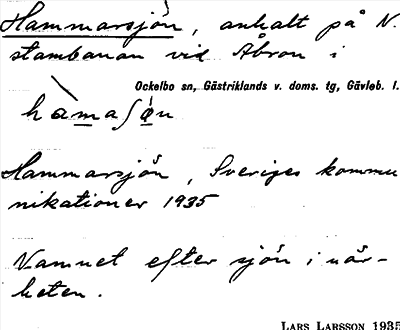 Hammarsjön, anhalt på N.
stambanan vid Åbron i
Ockelbo sn, Gästriklands v. doms. tg, Gävleb. l.
hàmaʃǿn
Hammarsjön, Sveriges kommu
nikationer 1935
Namnet efter sjön i när-
heten.
LARS LARSSON 1935